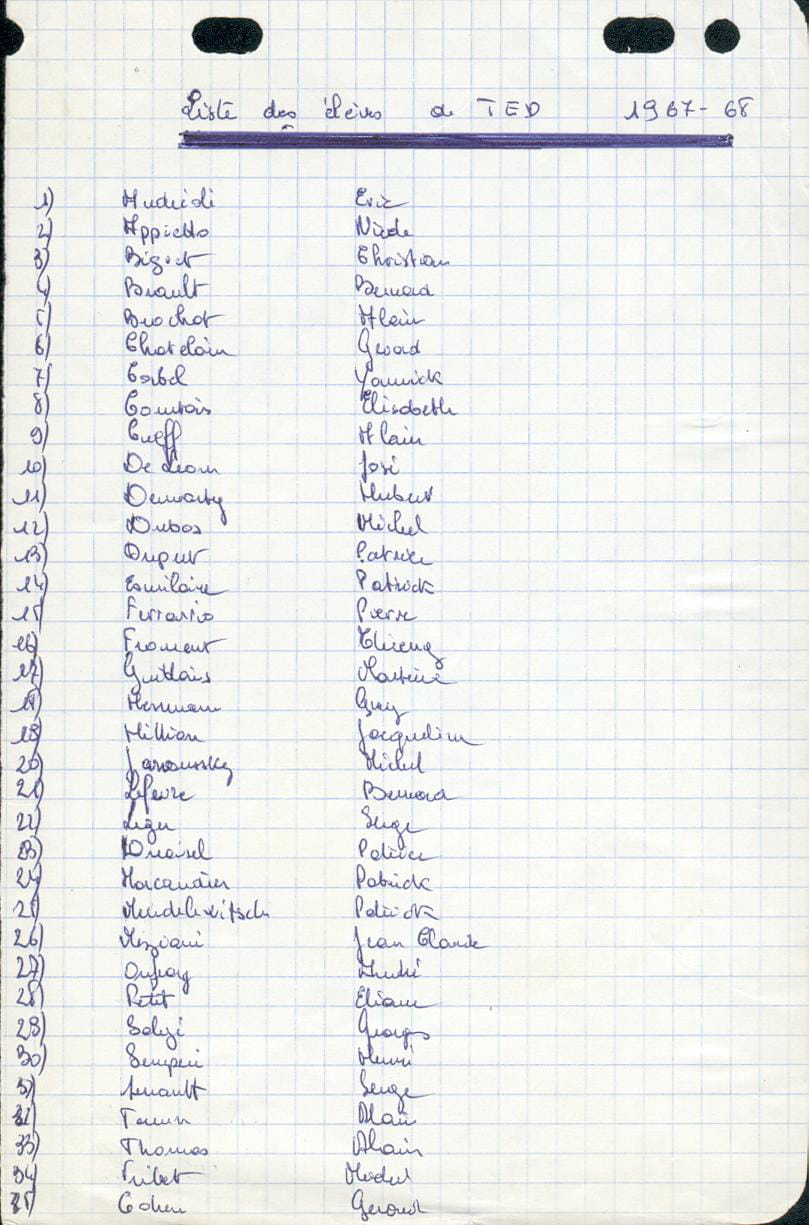 Liste des élèves de TED 1967-68
1) Andreoli Eric
2) Appietto Nicole
3) Bigot Christian
4) Brault Bernard
5) Brochot Alain
6) Chatelain Gerard
7) Corbel Yannick
8) Courtois Elisabeth
9) Cueff Alain
10) De Leon José
11) Demarty Hubert
12) Dubos Michel
13) Duput Patrice
14) Esmilaire Patrick
15) Ferrario Pierre
16) Froment Thierry
17) Guitlais Martine
18) Hermann Guy
19) Hillion Jacqueline
20) Janoussky Michel
21) Lefevre Bernard
22) Leger Serge
23) Patrice
24) Marcandier Patrick
25) Mendelevitsch Patrick
26) Meziani Jean Claude
27) André
28) Petit Eliane
29) Georges
30) Semperi Henri
31) Serge
32) Alain
33) Thomas Alain
34) Tribet Michel
35) Cohen Gerard